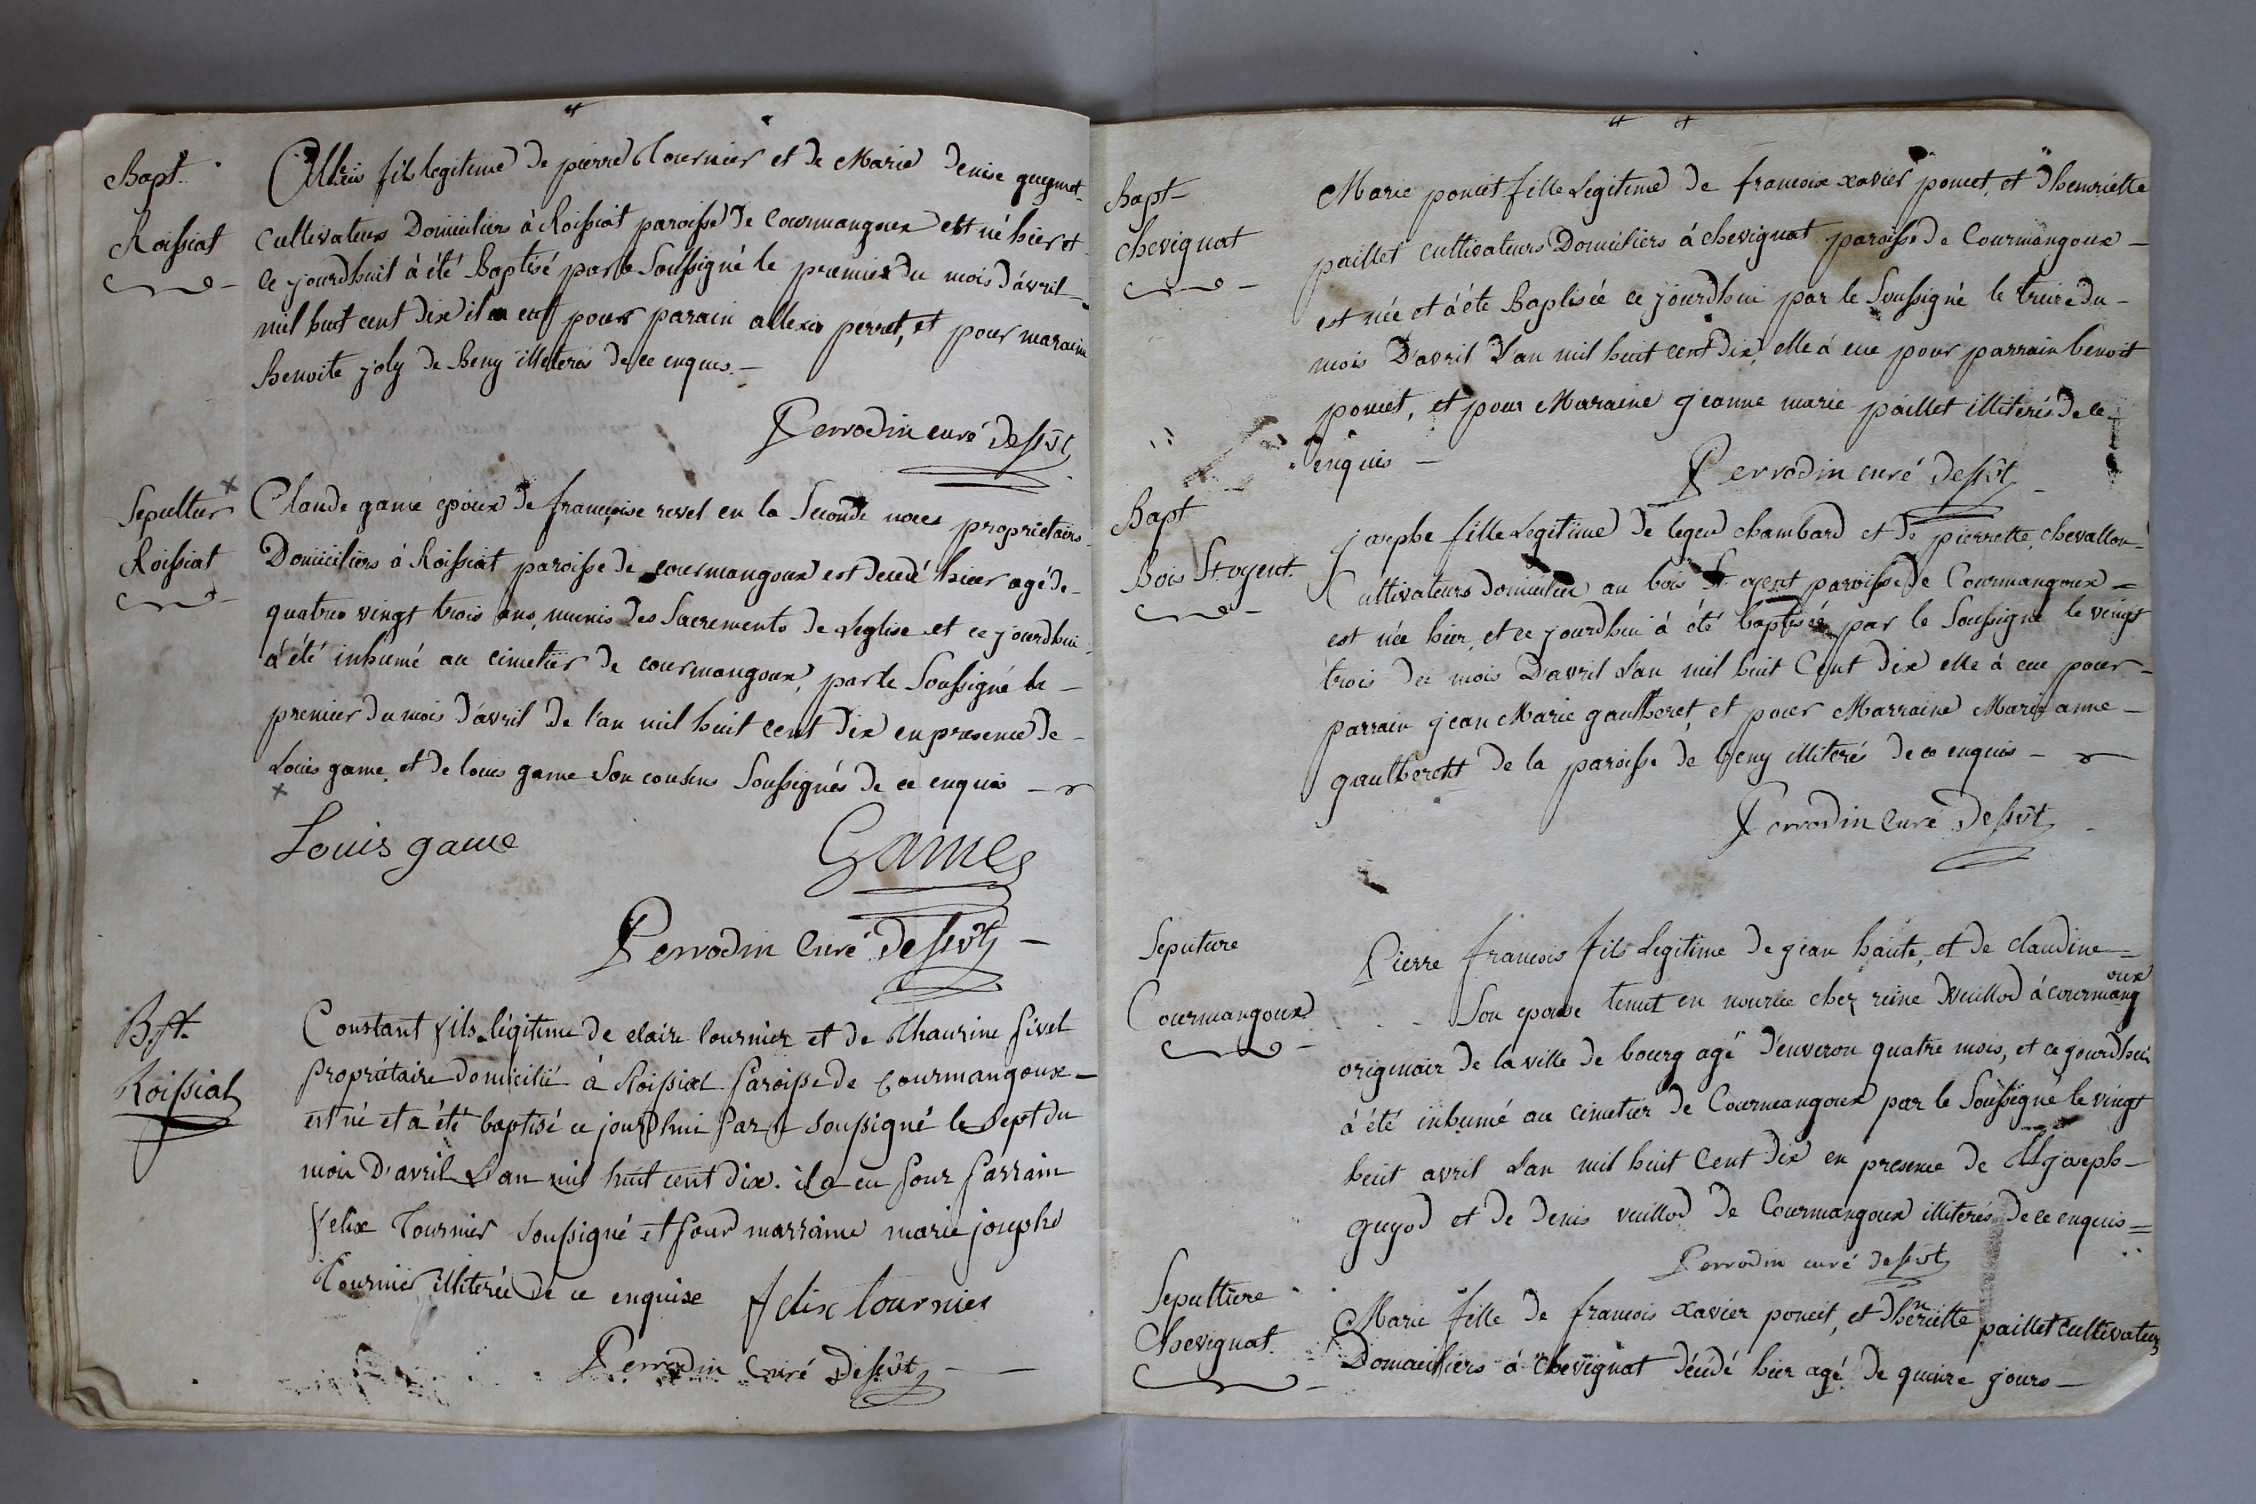 Bapt.
Roissiat
fils legitime de pierre tournier et de Marie denise guymet
Cultivateurs Domiciliers à Roissiat paroisse de Courmangoux est né hier et
ce jourdhuit à été Baptisé par le Soussigné le premier du mois d'avril
mil huit cent dix il a eu pour parain allexis perret, et pour maraine
Benoite joly de Beny illeteres de ce enquis. —
Perrodin curé desservt
Sepultur
Roissiat
Claude game epoux de françoise revel en la Seconde noces proprietairs
Domiciliers à Roissiat paroisse de courmangoux est decedé hier agé de
quatres vingt trois ans, munis des Sacrements de Leglise et ce jourdhui
à été inhumé au cimetier de courmangoux, par le Soussigné le
premier du mois d'avril de l'an mil huit cent dix en presence de
Louis game, et de louis game Son cousins Soussignés de ce enquis
Louis game
Game
Perrodin Curé desservt
Bpt.
Roissiat
Constant fils légitime de claire tournier et de Thaurine sivel
propriétaire domicilié à Roissiat paroisse de Courmangoux
est né et a été baptisé ce jourdhui par le soussigné le sept du
mois D'avril L'an mil huit cent dix. il a eu pour parrain
felix Tournier soussigné et pour marraine marie josephe
Tournier illiterée de ce enquise
felix tournier
Perrodin Curé desservt
Bapt
chevignat
Marie poncet fille Legitime de francoix xavier poncet, et d'henriette
paillet cultivateurs Domiciliers à chevignat paroisse de Courmangoux
est née et à été Baptisée ce jourdhui par le Soussigné le treize du
mois D'avril L'an mil huit cent dix, elle à eue pour parrain benoit
poncet, et pour Maraine jeanne marie paillet illiterés de ce
enquis
Perrodin curé desservt
Bapt
Bois St. oyent.
josephe fille Legitime de legeu chambard et de pierrette chevallon
Cultivateurs domicilier au bois St. oyent paroisse de Courmangoux
est née hier, et ce jourdhui à été baptisée par le Soussigné le vingt
trois du mois D'avril L'an mil huit Cent dix elle à eue pour
parrain jean Marie gaulheret et pour Marraine Marie anne
gaulherett de la paroisse de beny illiterés de ce enquis
Perrodin Curé desservt
Seputure
Courmangoux
Pierre francois fils Legitime de jean haute, et de claudine
Son epouse tenut en nourice chez reine Vuillod à courmangoux
originair de la ville de bourg agé d'enveron quatre mois, et ce jourdhui
à été inhumé au cimetier de Courmangoux par le Soussigné le vingt
heuit avril L'an mil heuit Cent dix en presence de joseph
guyod et de denis vuillod de Courmangoux illiterés de ce enquis
Perrodin curé desservt
Sepulture
Chevignat.
Marie fille de francois xavier poncet, et d'henriette paillet cultivateurs
Domaiciliers à Chevignat décedé hier agé de quinze jours